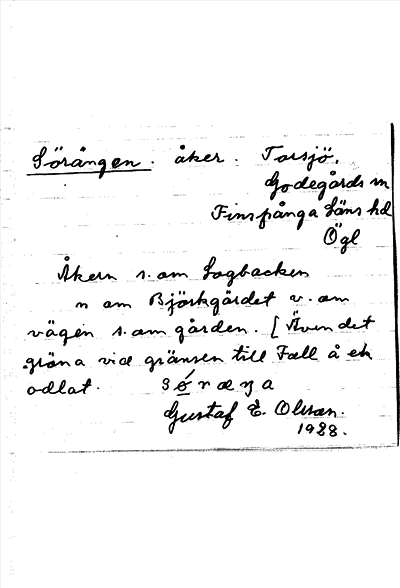 Sörången. åker. Torsjö.
Godegårds sn
Finspånga Läns hd
Ögl
Åkern s. om Logbacken
n om Björkgärdet v. om
vägen s. om gården. [Även det
gröna vid gränsen till Fall å ek
odlat. sɵ́raŋa
Gustaf E. Olsson.
1928.